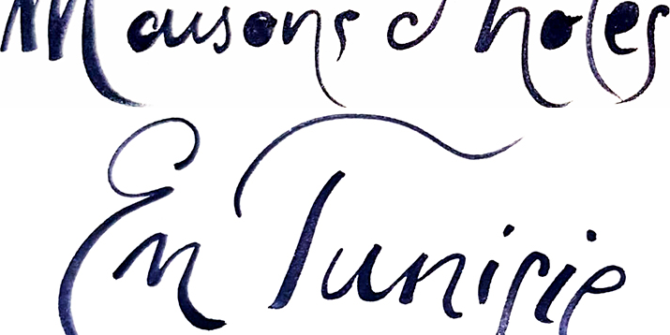 Maisons d'hôtes
En Tunisie